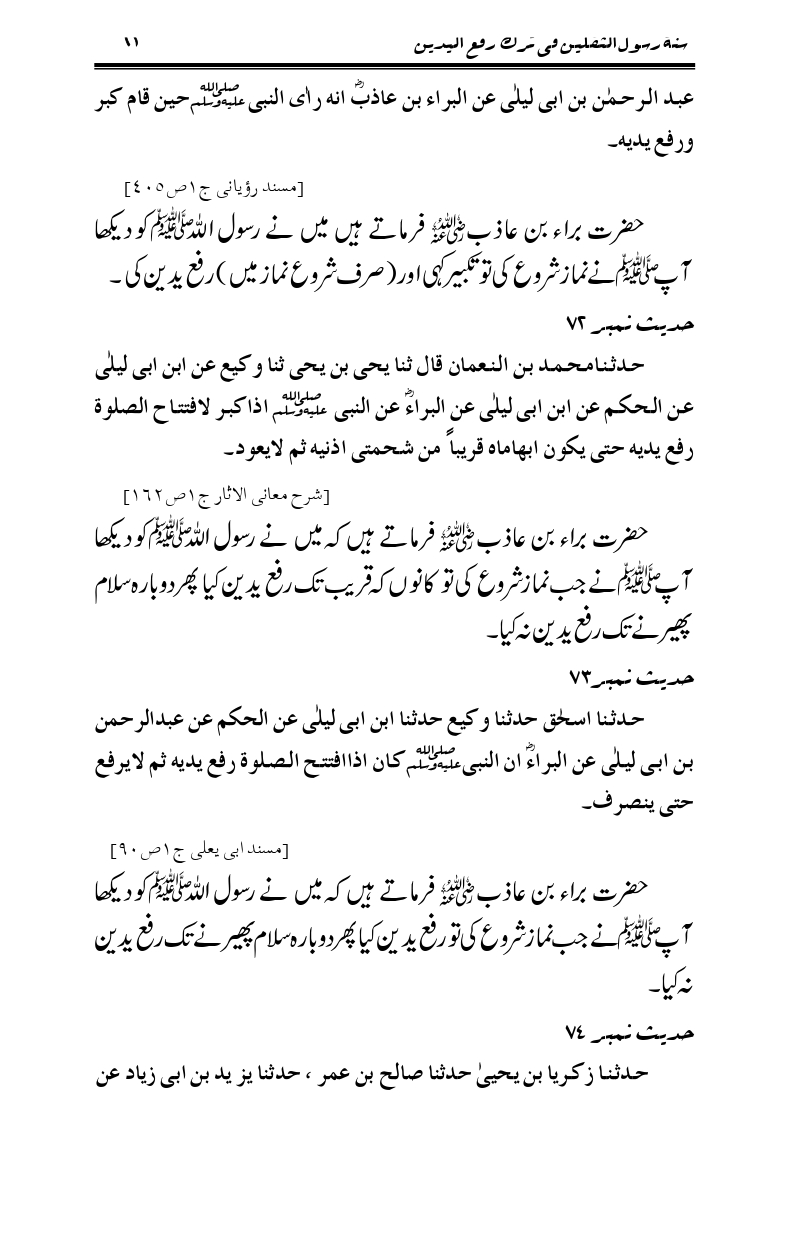 سنة رسول الثقلین فی ترک رفع الیدین ۱۱
عبد الرحمٰن بن ابی لیلٰی عن البراء بن عاذبؓ انه رای النبی ﷺ حین قام کبر
ورفع یدیه۔
[مسند رؤیانی ج۱ص۴۰۵]
حضرت براء بن عاذب رضی اللہ عنہ فرماتے ہیں میں نے رسول اللہ ﷺ کو دیکھا
آپ ﷺ نے نماز شروع کی تو تکبیر کہی اور (صرف شروع نماز میں) رفع یدین کی ۔
حدیث نمبر ۷۲
حدثنا محمد بن النعمان قال ثنا یحی بن یحی ثنا وکیع عن ابن ابی لیلٰی
عن الحکم عن ابن ابی لیلٰی عن البراءؓ عن النبی ﷺ اذا کبر لافتتاح الصلوة
رفع یدیه حتی یکون ابهاماه قریباً من شحمتی اذنیه ثم لایعود۔
[شرح معانی الاثار ج۱ص۱۶۲]
حضرت براء بن عاذب رضی اللہ عنہ فرماتے ہیں کہ میں نے رسول اللہ ﷺ کو دیکھا
آپ ﷺ نے جب نماز شروع کی تو کانوں کہ قریب تک رفع یدین کیا پھر دوبارہ سلام
پھیرنے تک رفع یدین نہ کیا۔
حدیث نمبر ۷۳
حدثنا اسحٰق حدثنا وکیع حدثنا ابن ابی لیلٰی عن الحکم عن عبدالرحمن
بن ابی لیلٰی عن البراءؓ ان النبی ﷺ کان اذاافتتح الصلوة رفع یدیه ثم لایرفع
حتی ینصرف۔
[مسند ابی یعلی ج۱ص۹۰]
حضرت براء بن عاذب رضی اللہ عنہ فرماتے ہیں کہ میں نے رسول اللہ ﷺ کو دیکھا
آپ ﷺ نے جب نماز شروع کی تو رفع یدین کیا پھر دوبارہ سلام پھیرنے تک رفع یدین
نہ کیا۔
حدیث نمبر ۷۴
حدثنا زکریا بن یحییٰ حدثنا صالح بن عمر ، حدثنا یزید بن ابی زیاد عن